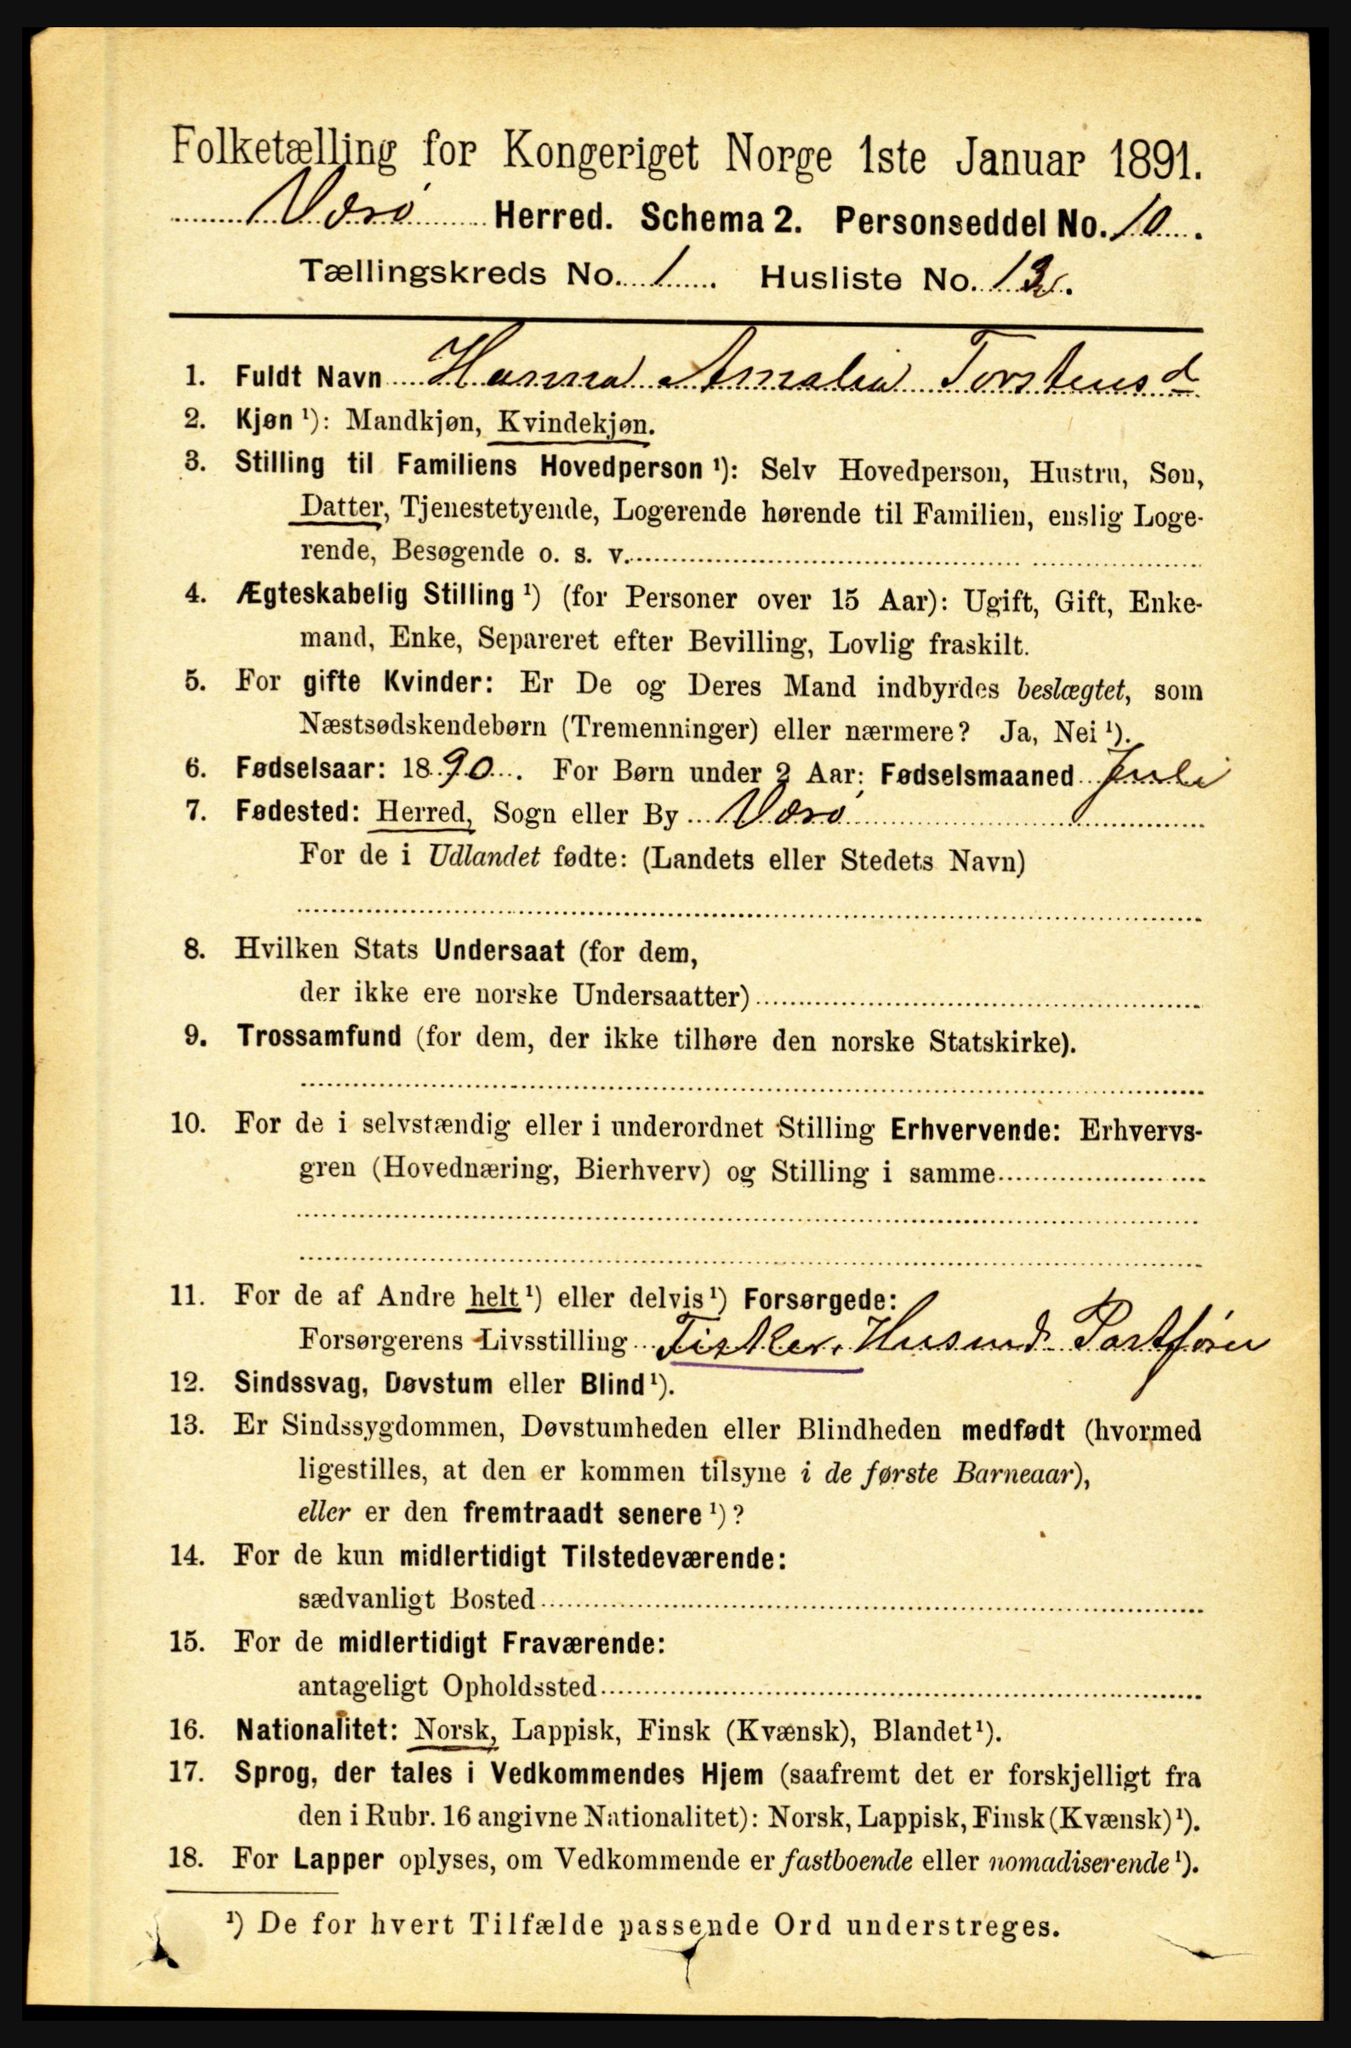 Folketælling for Kongeriget Norge 1ste Januar 1891.
Værø Herred. Schema 2. Personseddel No. 10.
Tællingskreds No. 1. Husliste No. 13.
1. Fuldt Navn Hanna Amalia Torstensd
2. Kjøn ¹): Mandkjøn, Kvindekjøn.
3. Stilling til Familiens Hovedperson ¹): Selv Hovedperson, Hustru, Søn,
Datter, Tjenestetyende, Logerende hørende til Familien, enslig Loge-
rende, Besøgende o. s. v.
4. Ægteskabelig Stilling ¹) (for Personer over 15 Aar): Ugift, Gift, Enke-
mand, Enke, Separeret efter Bevilling, Lovlig fraskilt.
5. For gifte Kvinder: Er De og Deres Mand indbyrdes beslægtet, som
Næstsødskendebørn (Tremenninger) eller nærmere? Ja, Nei ¹).
6. Fødselsaar: 1890. For Børn under 2 Aar: Fødselsmaaned Juli
7. Fødested: Herred, Sogn eller By Værø
For de i Udlandet fødte: (Landets eller Stedets Navn)
8. Hvilken Stats Undersaat (for dem,
der ikke ere norske Undersaatter)
9. Trossamfund (for dem, der ikke tilhøre den norske Statskirke).
10. For de i selvstændig eller i underordnet Stilling Erhvervende: Erhvervs-
gren (Hovednæring, Bierhverv) og Stilling i samme
11. For de af Andre helt ¹) eller delvis ¹) Forsørgede:
Forsørgerens Livsstilling Fisker, Husmd
12. Sindssvag, Døvstum eller Blind ¹).
13. Er Sindssygdommen, Døvstumheden eller Blindheden medfødt (hvormed
ligestilles, at den er kommen tilsyne i de første Barneaar),
eller er den fremtraadt senere ¹)?
14. For de kun midlertidigt Tilstedeværende:
sædvanligt Bosted
15. For de midlertidigt Fraværende:
antageligt Opholdssted
16. Nationalitet: Norsk, Lappisk, Finsk (Kvænsk), Blandet ¹).
17. Sprog, der tales i Vedkommendes Hjem (saafremt det er forskjelligt fra
den i Rubr. 16 angivne Nationalitet): Norsk, Lappisk, Finsk (Kvænsk) ¹).
18. For Lapper oplyses, om Vedkommende er fastboende eller nomadiserende ¹).
¹) De for hvert Tilfælde passende Ord understreges.